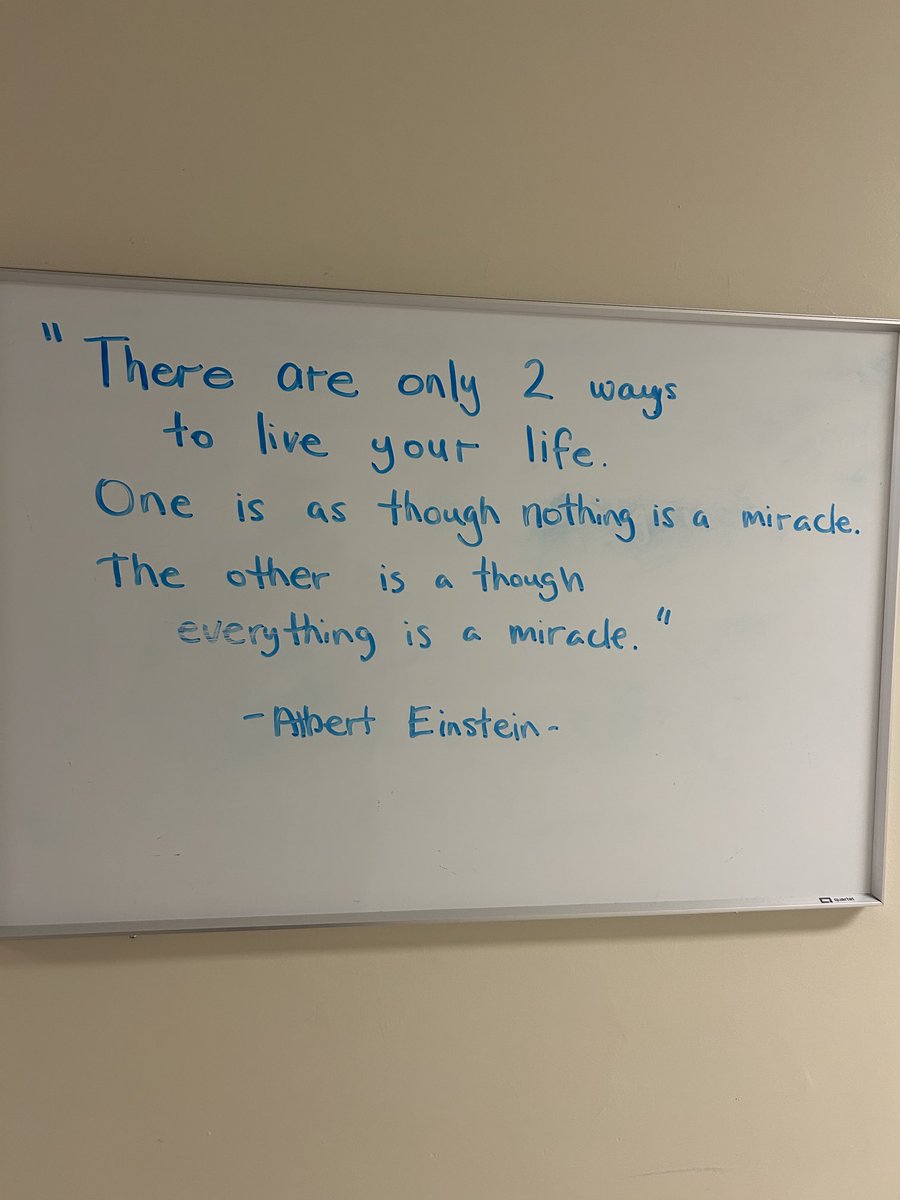 "There are only 2 ways
to live your life.
One is as though nothing is a miracle.
The other is a though
everything is a miracle."
- Albert Einstein -
Quartet